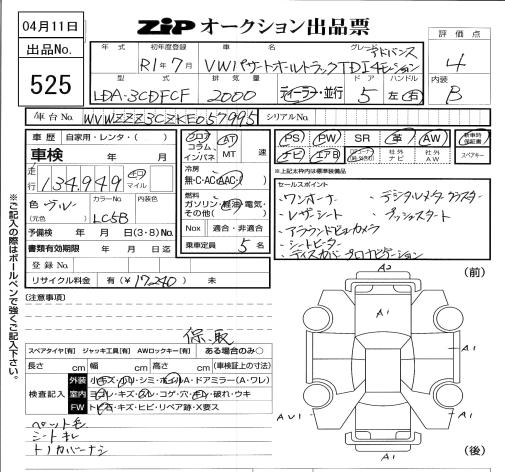 04月11日
出品No.
525
ZIP オークション出品票
評価点
4
内装
B
年式 初年度登録 車名 グレード ドア ハンドル
R1年7月 VWパサートオールトラックTDI4モーション
アドバンス
型式 排気量
LDA-3CDFCF 2000 ディーラー・並行 5 左 右
車台No. WVWZZZ3CZKE057995 シリアルNo.
車歴 自家用・レンタ・( )
車検 年 月
走行 134,949 km マイル
色 ブルー カラーNo. LC5B 内装色
(元色)
予備検 年 月 日 (3・8) No.
書類有効期限 年 月 日迄
登録No.
リサイクル料金 有(¥17240) 未
フロア コラム インパネ
AT MT 速
冷房
無・C・AC・AAC
燃料
ガソリン・軽油・電気・その他( )
Nox 適合・非適合
乗車定員 5名
PS PW SR 革 AW
ナビ エアB 社外ナビ 社外AW
新車時保証書 スペアキー
※上記太枠内は標準装備品
セールスポイント
・ワンオーナー ・デジタルメータークラスター
・レザーシート ・プッシュスタート
・アラウンドビューカメラ
・シートヒーター
・ディスカバープロナビゲーション
※ご記入の際はボールペンで強くご記入下さい。
[注意事項]
保、取
スペアタイヤ[有] ジャッキ工具[有] AWロックキー[有] ある場合のみ○
長さ cm 幅 cm 高さ cm (車検証上の寸法)
検査記入
外装 小キズ・凹リ・シミ・ホイルA・ドアミラー(A・ワレ)
室内 ヨゴレ・キズ・スレ・コゲ・穴・キレ・破れ・ウキ
FW トビ石・キズ・ヒビ・リペア跡・X要ス
ペット毛
シートキレ
トノカバーナシ
(前)
A2
A1
A1
A1
AU1
A1
(後)